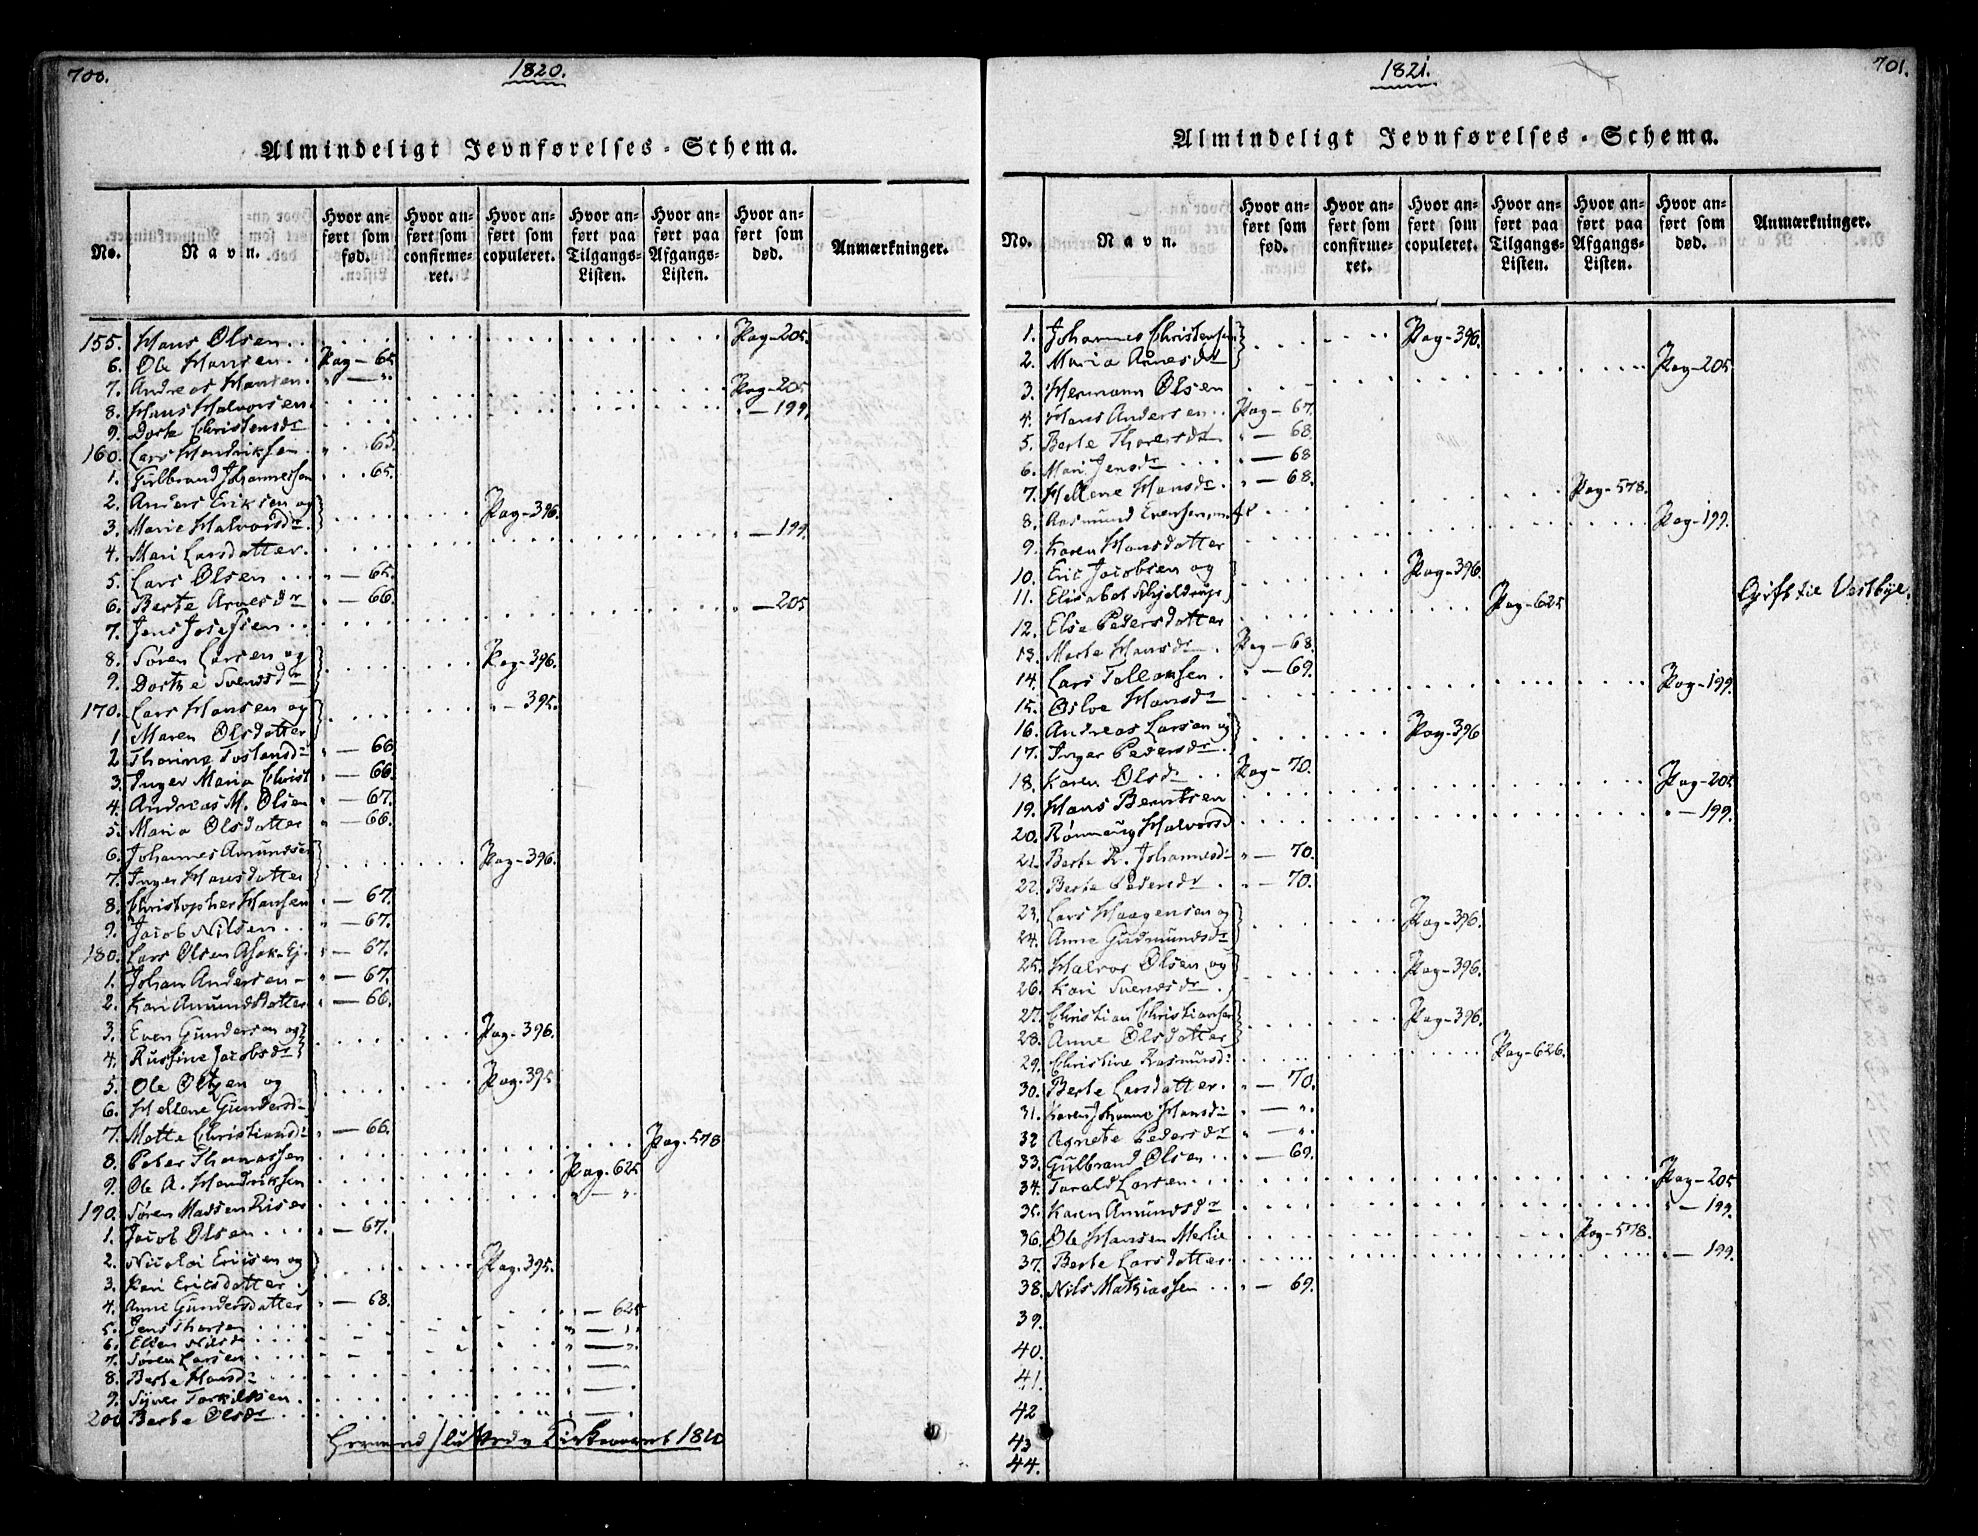 700.
1820.
Almindeligt Jevnførelses-Schema.
No. Navn. Hvor anført som fød. Hvor anført som confirmeret. Hvor anført som copuleret. Hvor anført paa Tilgangs-Listen. Hvor anført paa Afgangs-Listen. Hvor anført som død. Anmærkninger.
155. Hans Olsen Pag-205.
6. Ole Hansen Pag-65.
7. Andreas Hansen " — ".
8. Hans Halvorsen Pag-205
9. Dorte Christensdr " — 199.
160. Lars Hendriksen " 65.
1. Gulbrand Johannessen 65.
2. Anders Eriksen og
3. Marie Halvorsdr. Pag-396.
4. Mari Larsdatter " — 199
5. Lars Olsen " — 65.
6. Berte Arnesdr " — 66.
7. Jens Josefsen " — 205
8. Søren Larsen og
9. Dorthe Svensdr Pag-396.
170. Lars Hansen og " - 395.
1 Maren Olsdatter
2 Thorine Tostensdr — 66
3. Inger Maria Christ — 66.
4. Andreas M. Olsen " — 67.
5. Maria Olsdatter " — 66.
6. Johannes Amundsen
7. Inger Hansdatter Pag-396.
8. Christopher Hansen — 67.
9. Jacob Nilsen — 67.
180. Lars Olsen " — 67.
1. Johan Andersen " — 67.
2. Kari Amundsdatter " — 66.
3. Even Gundersen og
4. Russine Jacobsdr Pag-396.
5. Ole Olsen og Pag.395
6. Hellene Gundersdr
7. Mette Christiansdr — 66.
8. Peter Thomassen Pag.578
9. Ole A. Hendriksen Pag.625
190. Søren Madsen Riser " — ".
1. Jacob Olsen " — 67.
2. Nicolai Ericsen og
3. Kari Ericsdatter Pag.395.
4. Anne Gundersdatter " — 68.
5. Jens Thorsen " — 625
6. Ellen Nilsdr " — ".
7. Søren Larsen " — ".
8. Berte Hansdr " —
9. Syver Torkildsen " — ".
200 Berte Olsdr " — ".
1701.
1821.
Almindeligt Jevnførelses-Schema.
No. Navn. Hvor anført som fød. Hvor anført som confirmeret. Hvor anført som copuleret. Hvor anført paa Tilgangs-Listen. Hvor anført paa Afgangs-Listen. Hvor anført som død. Anmærkninger.
1. Johannes Christensen Pag-396.
2. Maria Arnesdr
3. Hermann Olsen Pag-205.
4. Hans Andersen Pag-67.
5. Berte Thoresdr " — 68.
6. Mari Jensdr " — 68
7. Hellene Hansdr. " — 68.
8. Aasmund Evensen Pag-578.
9. Karen Hansdatter Pag-199.
10. Eric Jacobsen og
11. Elisabet Pag-396.
12. Else Pedersdatter Pag-625 Gift til Vestbye.
13. Marte Hansdr Pag-68.
14. Lars Tollefsen " — 69.
15. Oslve Hansdr Pag-199.
16. Andreas Larsen og
17. Inger Pedersdr Pag-396
18. Karen Olsdr Pag-70.
19. Hans Berntsen Pag-205
20. Rønnaug Halvorsd " — 199.
21. Berte R. Johannesdr " — 70.
22. Berte Pedersdr " — 70.
23. Lars Haagensen og
24. Anne Gudmundsdr Pag-396.
25. Halvor Olsen og
26. Kari Svensdr Pag-396.
27. Christian Christiansen
28. Anne Olsdatter Pag-396.
29. Christine Rasmusdr Pag-626.
30. Berte Larsdatter " — 70.
31. Karen Johanne Hansdr " — ".
32 Agnete Pedersdr " — ".
33. Gulbrand Olsen " — 69.
34. Tarald Larsen Pag-205
35. Karen Amundsdr " — 199.
36. Ole Hansen Merlie Pag-578.
37. Berte Larsdatter " — 199.
38. Nils Mathiassen " — 69.
39.
40.
41.
42
43
44.